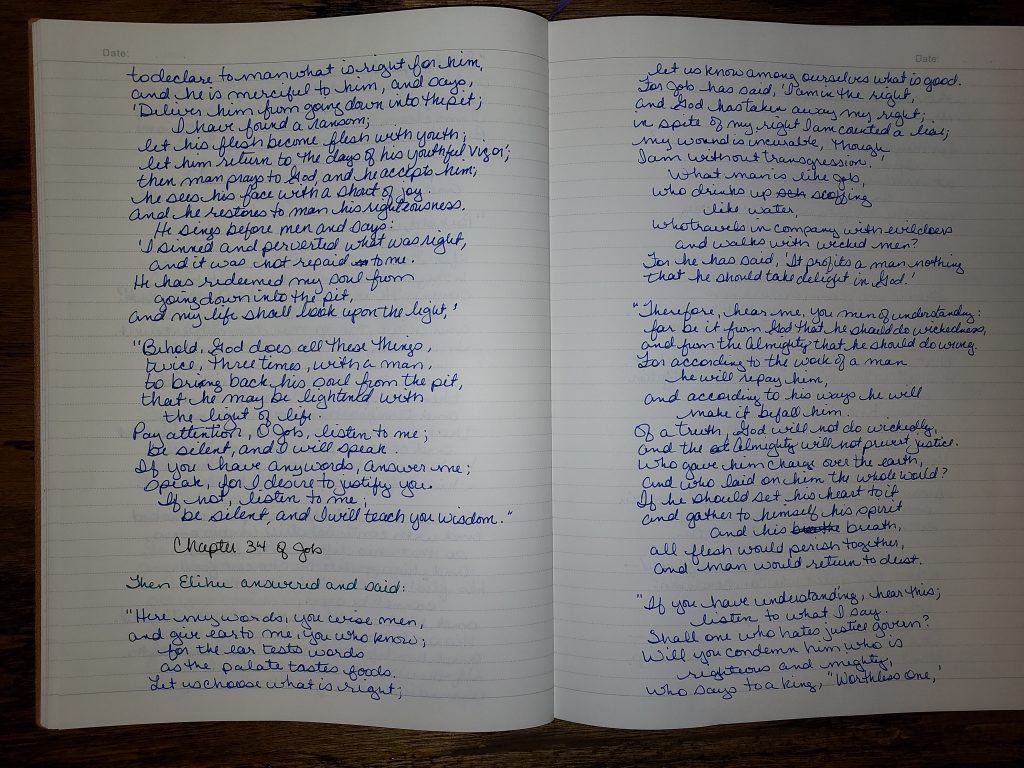 Date:
to declare to man what is right for him,
and he is merciful to him, and says,
'Deliver him from going down into the pit;
I have found a ransom;
let his flesh become flesh with youth;
let him return to the days of his youthful vigor';
then man prays to God, and he accepts him;
he sees his face with a shout of joy.
and he restores to man his righteousness.
He sings before men and says:
'I sinned and perverted what was right,
and it was not repaid to me.
He has redeemed my soul from
going down into the pit,
and my life shall look upon the light,'
"Behold, God does all these things,
twice, three times, with a man,
to bring back his soul from the pit,
that he may be lightened with
the light of life.
Pay attention, O Job, listen to me;
be silent, and I will speak.
If you have any words, answer me;
Speak, for I desire to justify you.
If not, listen to me;
be silent, and I will teach you wisdom."
Chapter 34 of Job
Then Elihu answered and said:
"Here my words, you wise men,
and give ear to me, you who know;
for the ear tests words
as the palate tastes foods.
Let us choose what is right;
Date:
let us know among ourselves what is good.
For Job has said, 'I am in the right,
and God has taken away my right;
in spite of my right I am counted a liar;
my wound is incurable, though
I am without transgression.'
What man is like Job,
who drinks up scoffing
like water,
who travels in company with evildoers
and walks with wicked men?
For he has said, 'It profits a man nothing
that he should take delight in God.'
"Therefore, hear me, you men of understanding:
far be it from God that he should do wickedness,
and from the Almighty that he should do wrong.
For according to the work of a man
he will repay him,
and according to his ways he will
make it befall him.
Of a truth, God will not do wickedly,
and the Almighty will not pervert justice.
Who gave him charge over the earth,
and who laid on him the whole world?
If he should set his heart to it
and gather to himself his spirit
and his breath,
all flesh would perish together,
and man would return to dust.
"If you have understanding, hear this;
listen to what I say.
Shall one who hates justice govern?
Will you condemn him who is
righteous and mighty,
who says to a king, "Worthless one,'